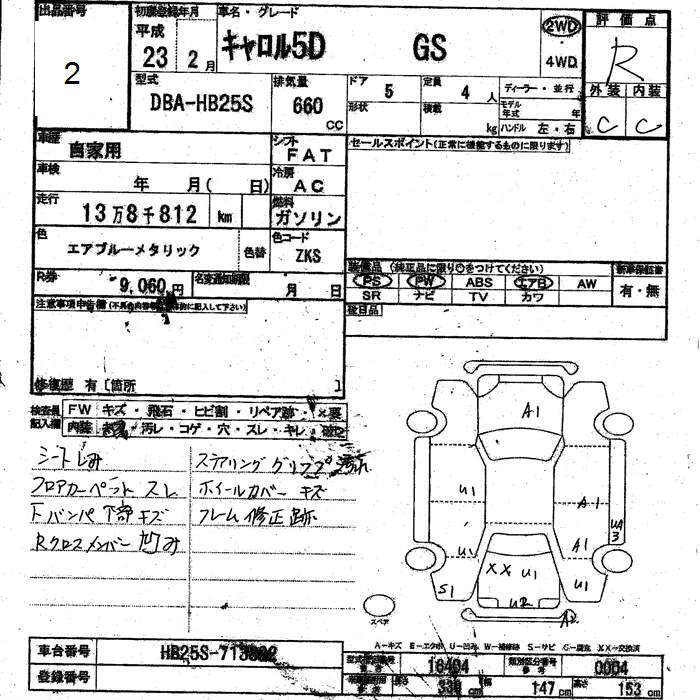 出品番号
2
初度登録年月
平成
23年 2月
車名・グレード
キャロル5D GS
2WD
4WD
評価点
R
外装 内装
C C
型式
DBA-HB25S
排気量
660
CC
ドア 5
定員 4人
形状
積載 kg
ディーラー・並行
モデル年式 年
ハンドル 左・右
車歴
自家用
シフト
FAT
セールスポイント(正常に機能するものに限ります)
車検
年 月( 日)
冷房
AC
走行
13万8千812 km
燃料
ガソリン
色
エアブルーメタリック
色替
色コード
ZKS
装備品 (純正品に限り○をつけてください)
新車保証書
PS PW ABS エアB AW
SR ナビ TV カワ
有・無
R券
9,060円
名変通知期限
月 日
後日品
注意事項申告欄
修復歴 有〔箇所 〕
検査員記入欄
FW キズ・飛石・ヒビ割・リペア跡・×要
内装 汚レ・コゲ・穴・スレ・キレ
シートしみ
フロアカーペット スレ
F バンパ 下部 キズ
Rクロスメンバー 凹み
ステアリング グリップ 汚れ
ホイールカバー キズ
フレーム 修正跡
A1
U1
A1
UA3
U1
A1
XX U1
U1
S1
U2
スペア
A-キズ E-エクボ U-凹み W-補修跡 S-サビ XX-交換済
車台番号
登録番号
類別区分番号
0004
147 cm
高さ
153 cm